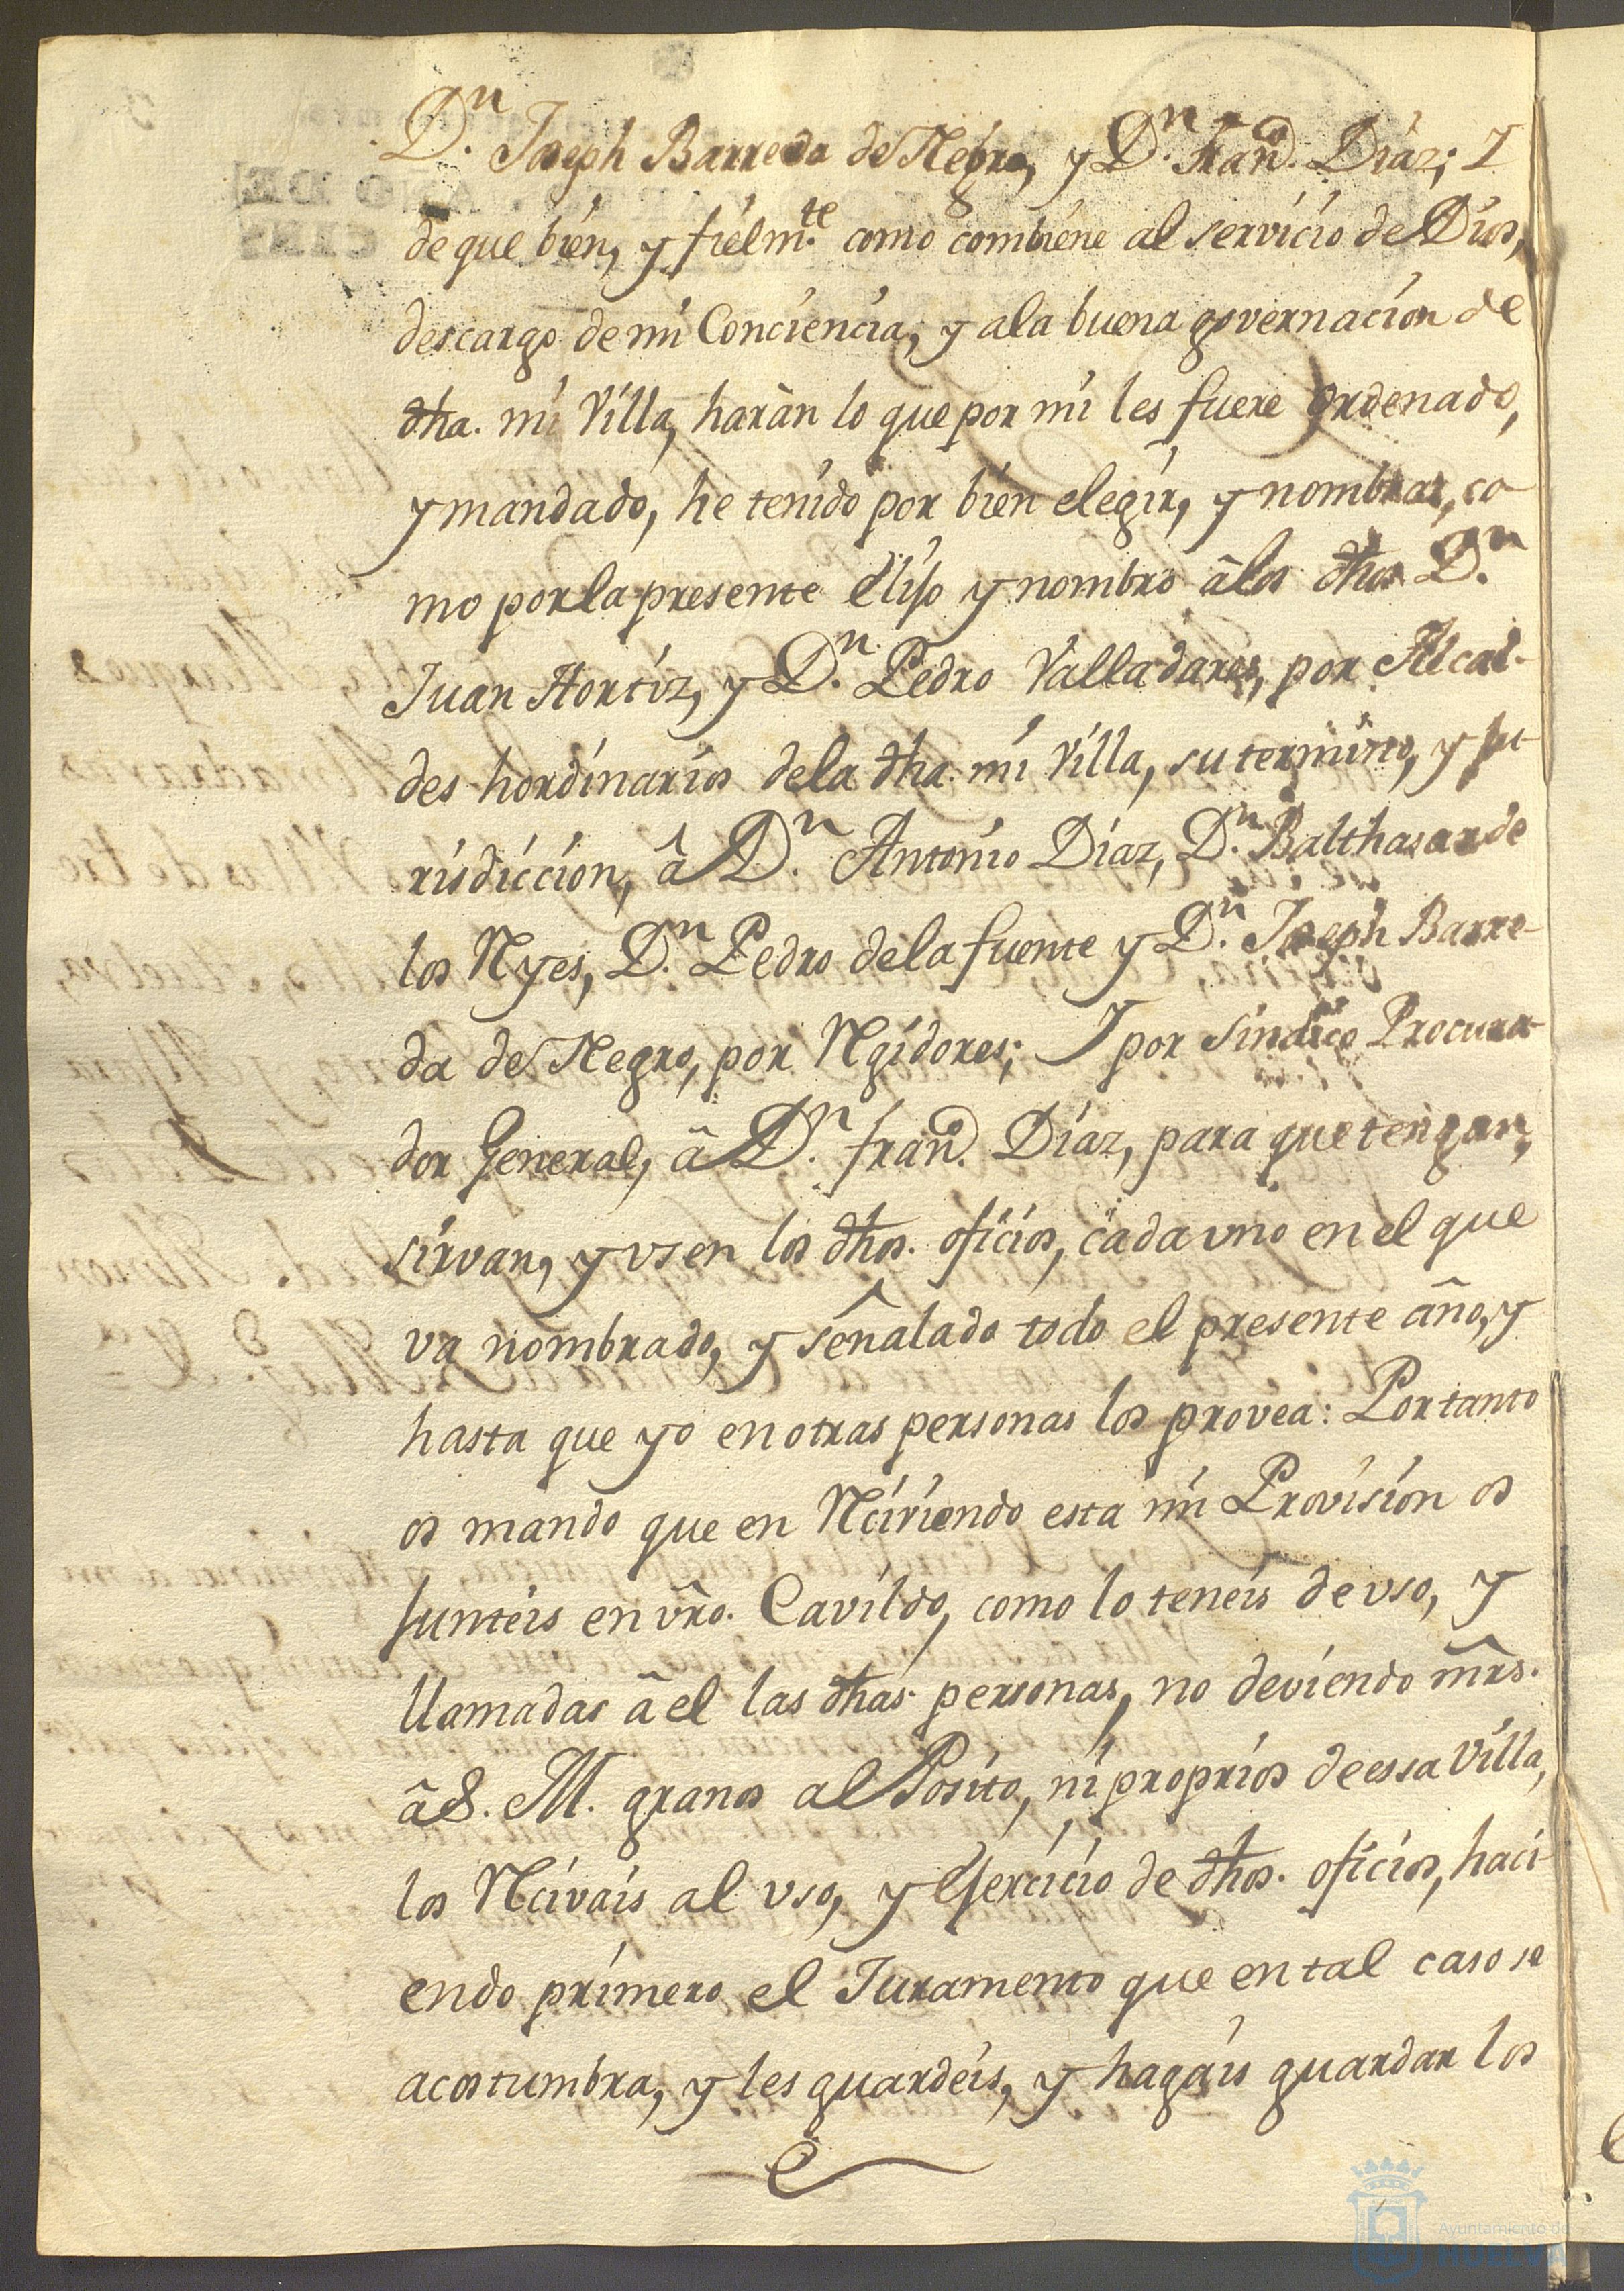 Dn. Joseph Barreda de Negro, y Dn. Franco. Diaz; I
de que bien, y fielmte. como combiene al servicio de Dios,
descargo de mi Conciencia, y ala buena governacion de
dha. mi Villa, haràn lo que por mi les fuere ordenado,
y mandado, he tenido por bien elegir, y nombrar, co-
mo por la presente elijo y nombro â los dhos Dn.
Juan Hortiz, y Dn. Pedro Valladares, por Alcal-
des hordinarios dela dha. mi Villa, su termino, y ju-
risdiccion, â Dn. Antonio Diaz, Dn. Balthasar de
los Ryes, Dn. Pedro dela fuente y Dn. Joseph Barre-
da de Negro, por Rgidores; I por Sindico Procura-
dor General, â Dn. Franco. Diaz, para que tengan,
sirvan, y vsen los dhos. oficios, cada vno en el que
va nombrado, y señalado todo el presente año, y
hasta que yo en otras personas los provea: Por tanto
os mando que en Rciviendo esta mi Provision os
junteis en vro. Cavildo, como lo teneis de vso, y
llamadas â el las dhas. personas, no deviendo mrs.
â S. M. granos al Posito, ni proprios de essa Villa,
los Rcivais al vso, y Ejercicio de dhos. oficios, haci-
endo primero el Juramento que en tal caso se
acostumbra, y les guardeis, y hagais guardar los
Ayuntamiento de
HUELVA